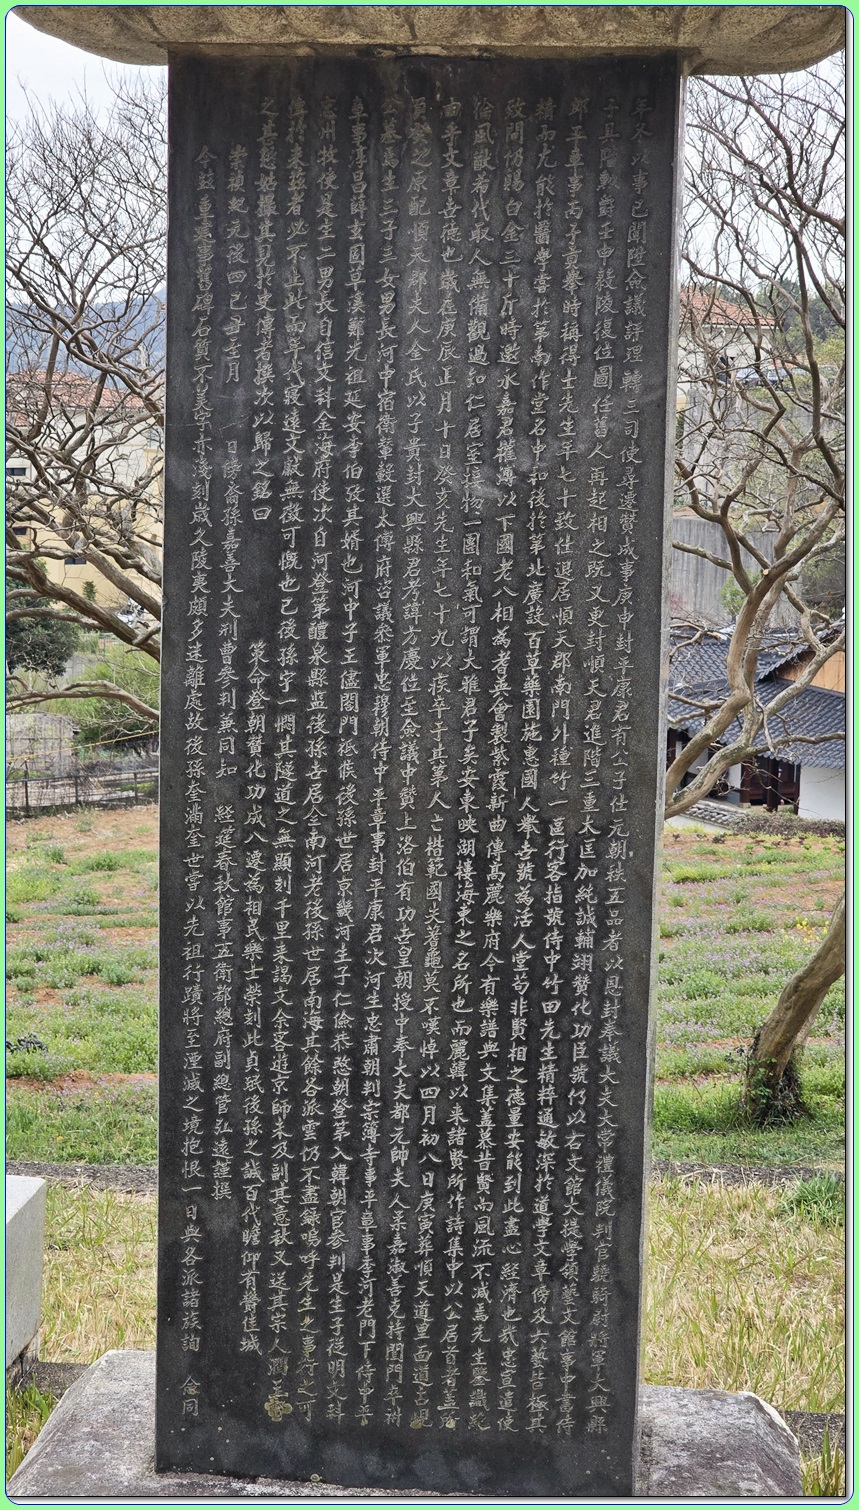 年冬以事已聞陞僉議評理轉三司使尋遷贊成事庚申封平康君有公子仕元朝秩五品者以恩封奉議大夫大常禮儀院判官驍騎尉將軍大興縣
子其階勳爵壬申毅陵復位圖任舊人再起相之旣又更封順天君進階三重大匡加純誠輔翊贊化功臣號仍以右文館大提學領藝文館事中書侍
郞平章事丙子貢擧時稱得士先生年七十致仕退居順天郡南門外種竹一區行客指號侍中竹田先生精粹通敏深於道學文章傍及六藝皆極其
精而尤能於醫學嘗於第南作堂名中和後於第北廣設百草藥園施惠國人擧世號爲活人堂苟非賢相之德量安能到此盡心經濟也哉忠宣遣使
致問仍賜白金三十斤時邀永嘉君權溥以下國老八相爲耆英會製紫霞新曲傳高麗樂府今有樂譜與文集蓋慕昔賢而風流不减焉先生鑒識
風㪚希代取人無備觀過知仁居室接物一團和氣可謂大雅君子矣安東映湖樓海東之名所也而麗韓以来諸賢所作詩集中以公居首者蓋
由乎文章世德也歲在庚辰正月十日癸亥先生年七十九以疾卒于其第人亡楷範國失蓍龜莫不嘆悼以四月初八日庚寅葬順天道里面道古
之原配順天郡夫人全氏以子貴封大興縣君考諱方慶位至僉議中贊上洛伯有功世皇朝授中奉大夫都元帥夫人柔嘉淑善克持閨門卒
公墓爲生三子三女男長河中宿衛輦轂選太傅府咨議參軍忠穆朝侍中平章事封平康君次河生忠肅朝判宗簿寺事平章事季河老門下侍中平
章事淳昌薛玄固草溪鄭光祖延安李伯孜其婿也河中子王儘閤門祇候後孫世居京畿河生子仁儉恭愍朝登第入韓朝官參判是生子從明文科
忠州牧使是生二男長自信文科金海府使次自河登第醴泉縣監後孫世居全南河老後孫世居南海其餘各派雲仍不盡錄嗚呼先生之事行之可
徵於来玆者必不止此而年代寢遠文獻無徵可慨也已後孫宇一憫其隧道之無顯刻千里来謁文余客遊京師未及副其意秋又送其宗人
之其懇始撮其見於史傳者撰次以歸之銘曰
策命登朝贊化功成八遷爲相民樂士榮刻此貞珉後孫之誠百代瞻仰有鬱佳城
崇禎起元後四己丑至月 一日 裔孫嘉善大夫刑曹參判兼同知 經筵春秋館事五衛都總府副總管弘遠謹撰
今玆重建事舊碑石質不美字亦淺刻歲久陵夷頗多迷離處故後孫奎滿奎世嘗以先祖行蹟將至湮滅之境抱恨一日與各派諸族詢 僉同